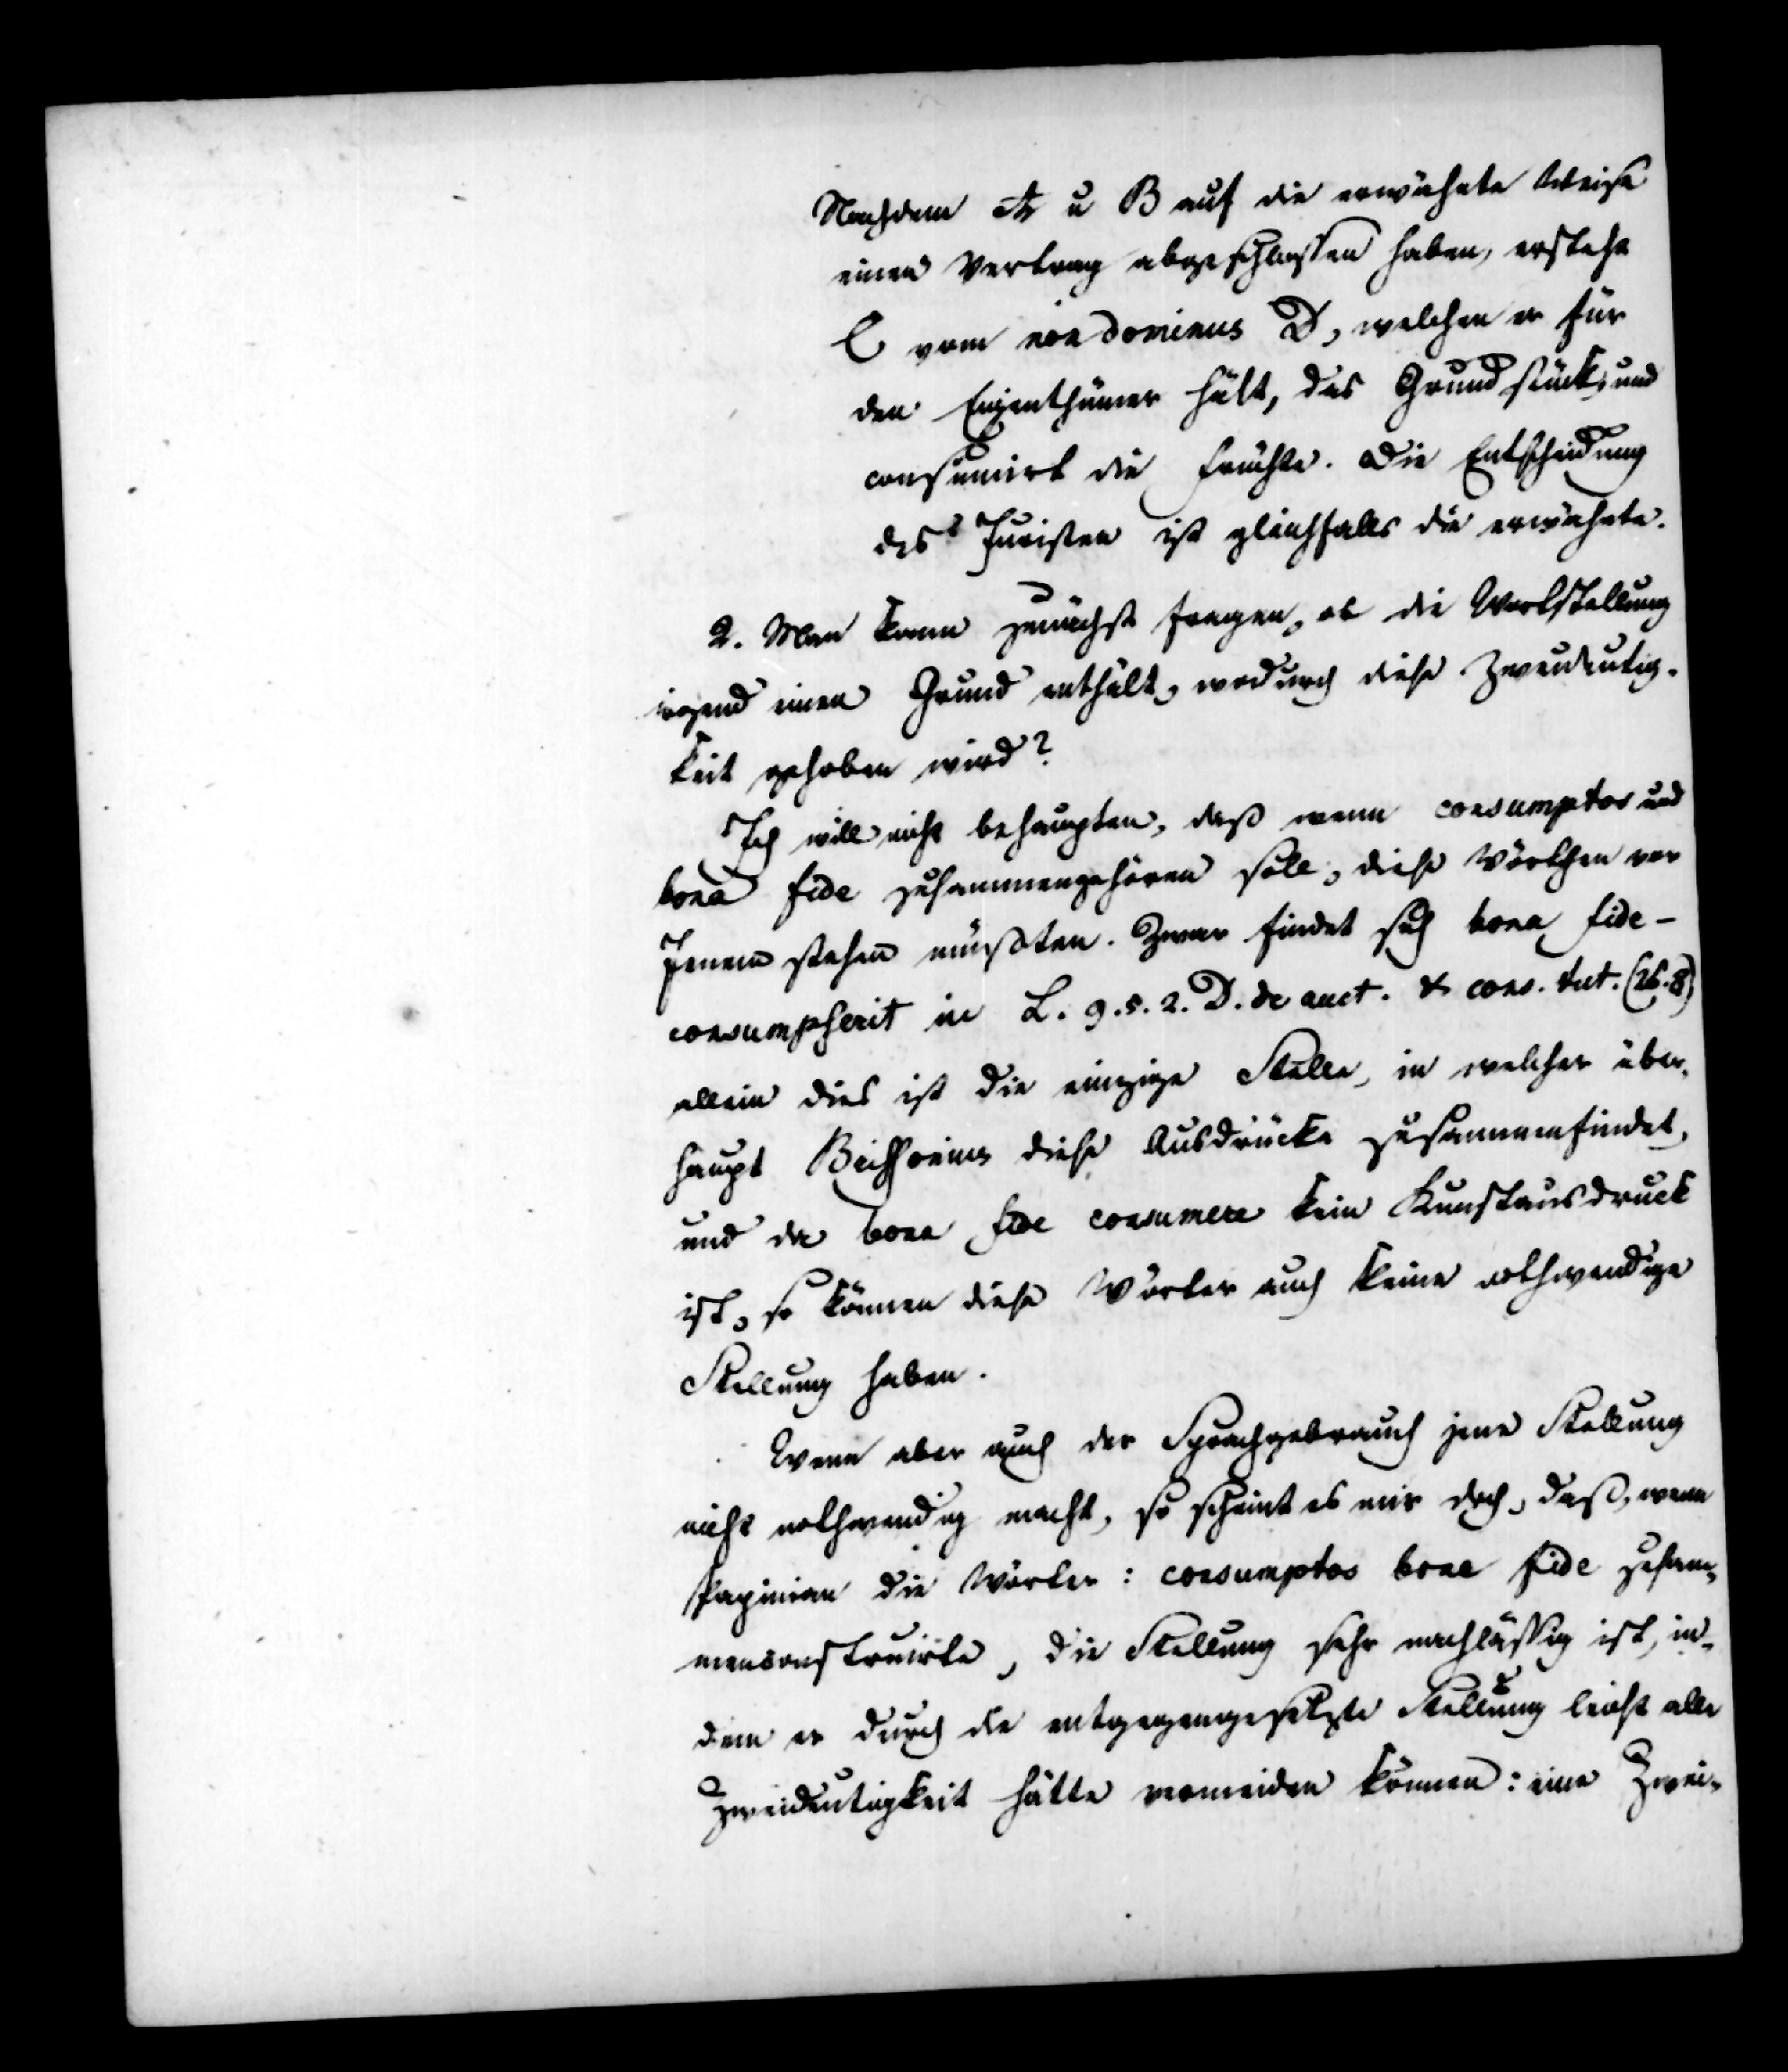 Nachdem A u B auf die erwähnte Weise
einen Vertrag abgeschlossen haben, ersteht
C vom non dominus D, welchen er für
den Eigenthümer hält, das Grundstück, und
consumirt die Früchte. Die Entscheidung
des Juristen ist gleichfalls die erwähnte.
2. Man kann zunächst fragen, ob die Wortstellung
irgend einen Grund enthält, wodurch diese Zweideutig-
keit gehoben wird?
Ich will nicht behaupten, daß wenn consumptos und
bona fide zusammengehören solle, diese Wörtchen vor
Jenem stehen müßten. Zwar findet sich bona fide -
consumpserit in L. 9. §. 2. D. de auct. & cons. tut. (26.8)
allein dies ist die einzige Stelle, in welcher über-
haupt Brissonius diese Ausdrücke zusammenfindet,
und da bona fide consumere kein Kunstausdruck
ist, so können diese Wörter auch keine nothwendige
Stellung haben.
Wenn aber auch der Sprachgebrauch jene Stellung
nicht nothwendig macht, so scheint es mir doch, daß, wenn
Papinian die Wörter: consumptos bona fide zusam-
menconstruirte, die Stellung sehr nachlässig ist, in-
dem er durch die entgegengesetzte Stellung leicht alle
Zweideutigkeit hätte vermeiden können: eine Zwei-